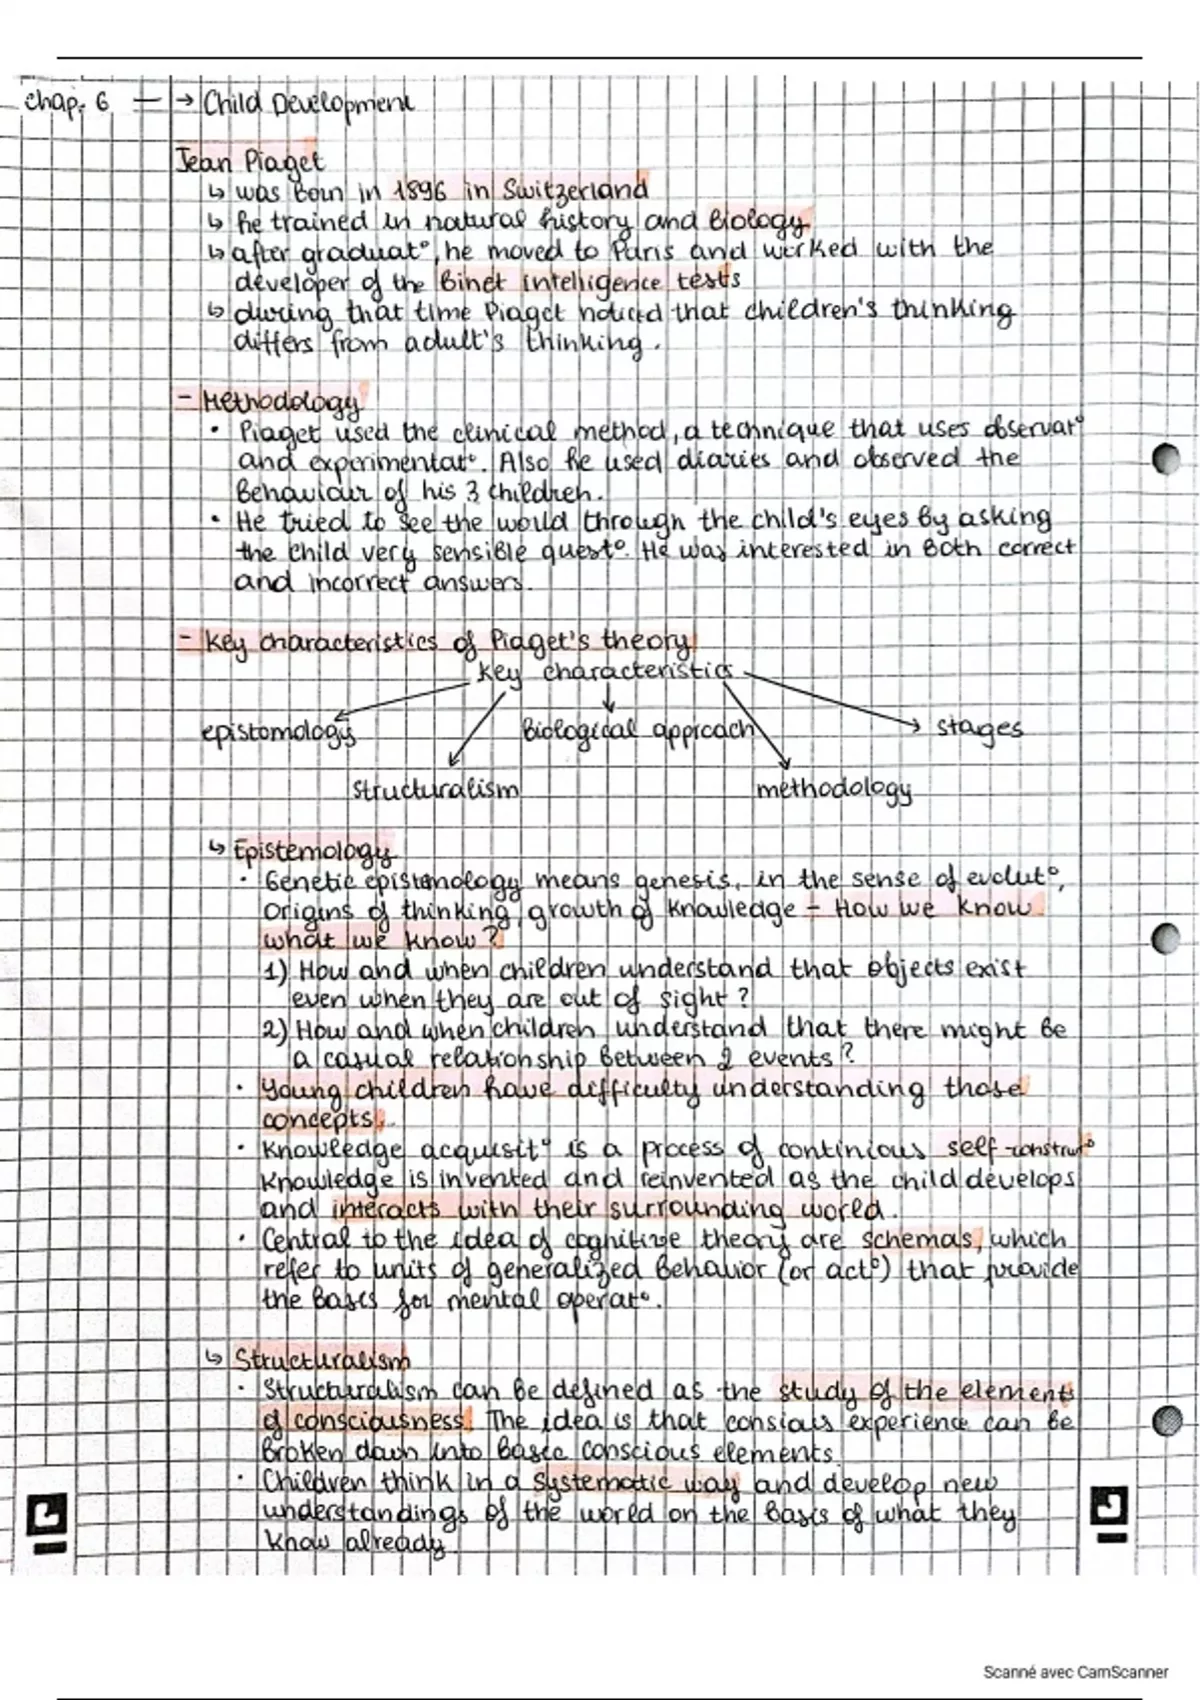 chap. 6 → Child Development
Jean Piaget
↳ was born in 1896 in Switzerland
↳ he trained in natural history and biology
↳ after graduat°, he moved to Paris and worked with the
developer of the Binet intelligence tests
↳ during that time Piaget noticed that children's thinking
differs from adult's thinking.
- Methodology
• Piaget used the clinical method, a technique that uses observat°
and experimentat°. Also he used diaries and observed the
behaviour of his 3 children.
• He tried to see the world through the child's eyes by asking
the child very sensible quest°. He was interested in both correct
and incorrect answers.
- Key characteristics of Piaget's theory
key characteristics
epistomology
biological approach
stages
structuralism
methodology
↳ Epistemology
• Genetic epistemology means genesis, in the sense of evolut°,
origins of thinking, growth of knowledge - How we know
what we know?
1) How and when children understand that objects exist
even when they are out of sight?
2) How and when children understand that there might be
a casual relationship between 2 events?
• Young children have difficulty understanding those
concepts.
• Knowledge acquisit° is a process of continious self-construt°
knowledge is invented and reinvented as the child develops
and interacts with their surrounding world.
• Central to the idea of cognitive theory are schemas, which
refer to units of generalized behavior (or act°) that provide
the bases for mental operat°.
↳ Structuralism
• Structuralism can be defined as the study of the elements
of consciousness. The idea is that consious experience can be
broken down into basic conscious elements.
• Children think in a systematic way and develop new
understandings of the world on the basis of what they
know already
Scanné avec CamScanner